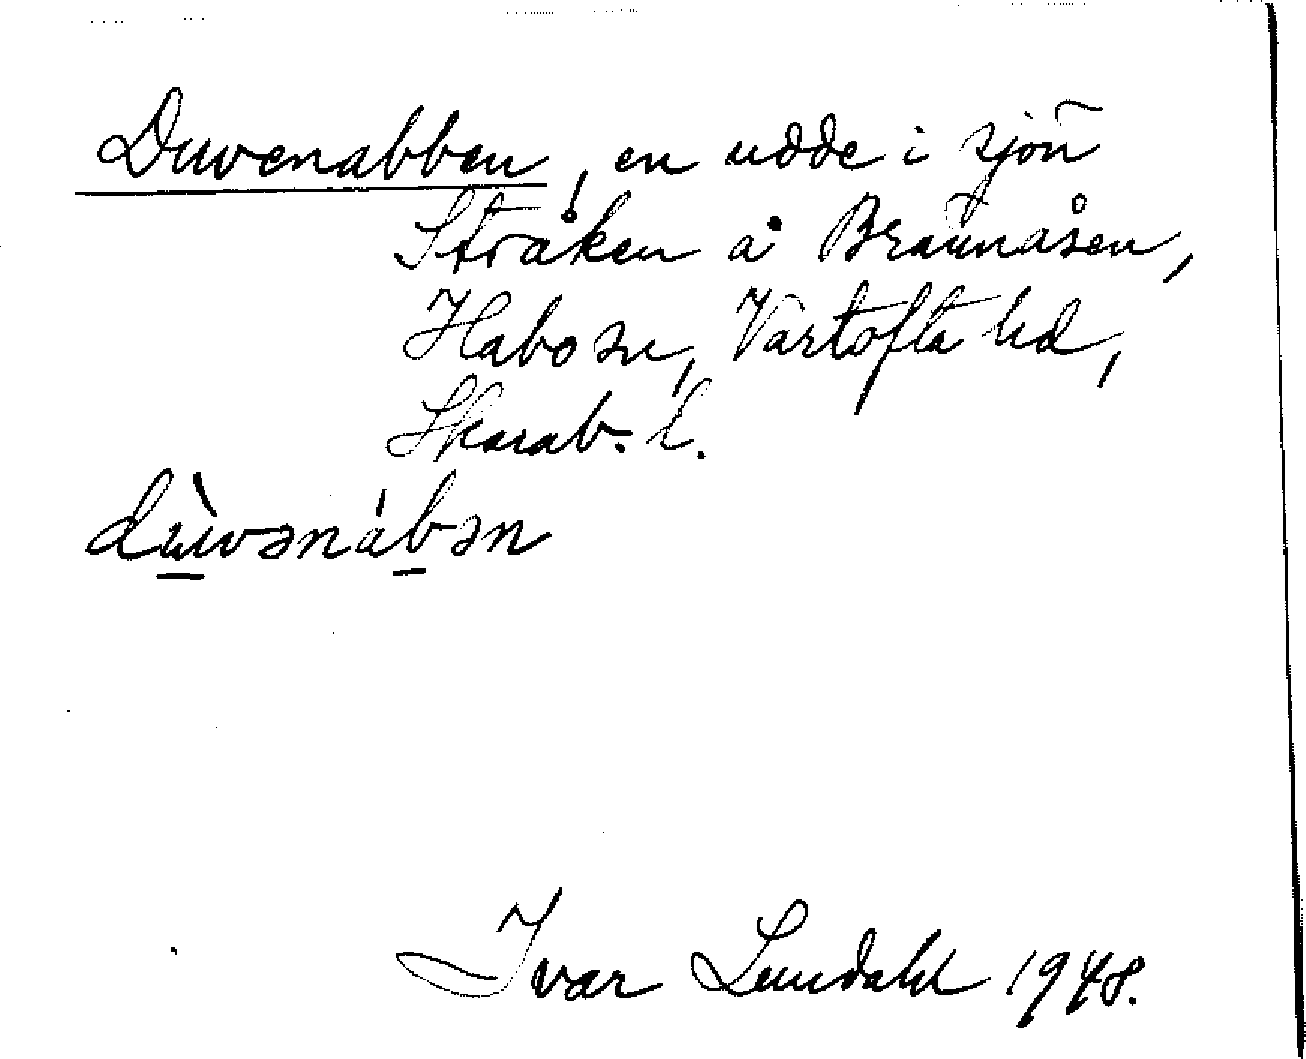 Duvenabben, en udde i sjön
Stråken å Brännåsen,
Habo sn, Vartofta hd,
Skarab. l.
dùvənábən
Ivar Lundahl 1948.